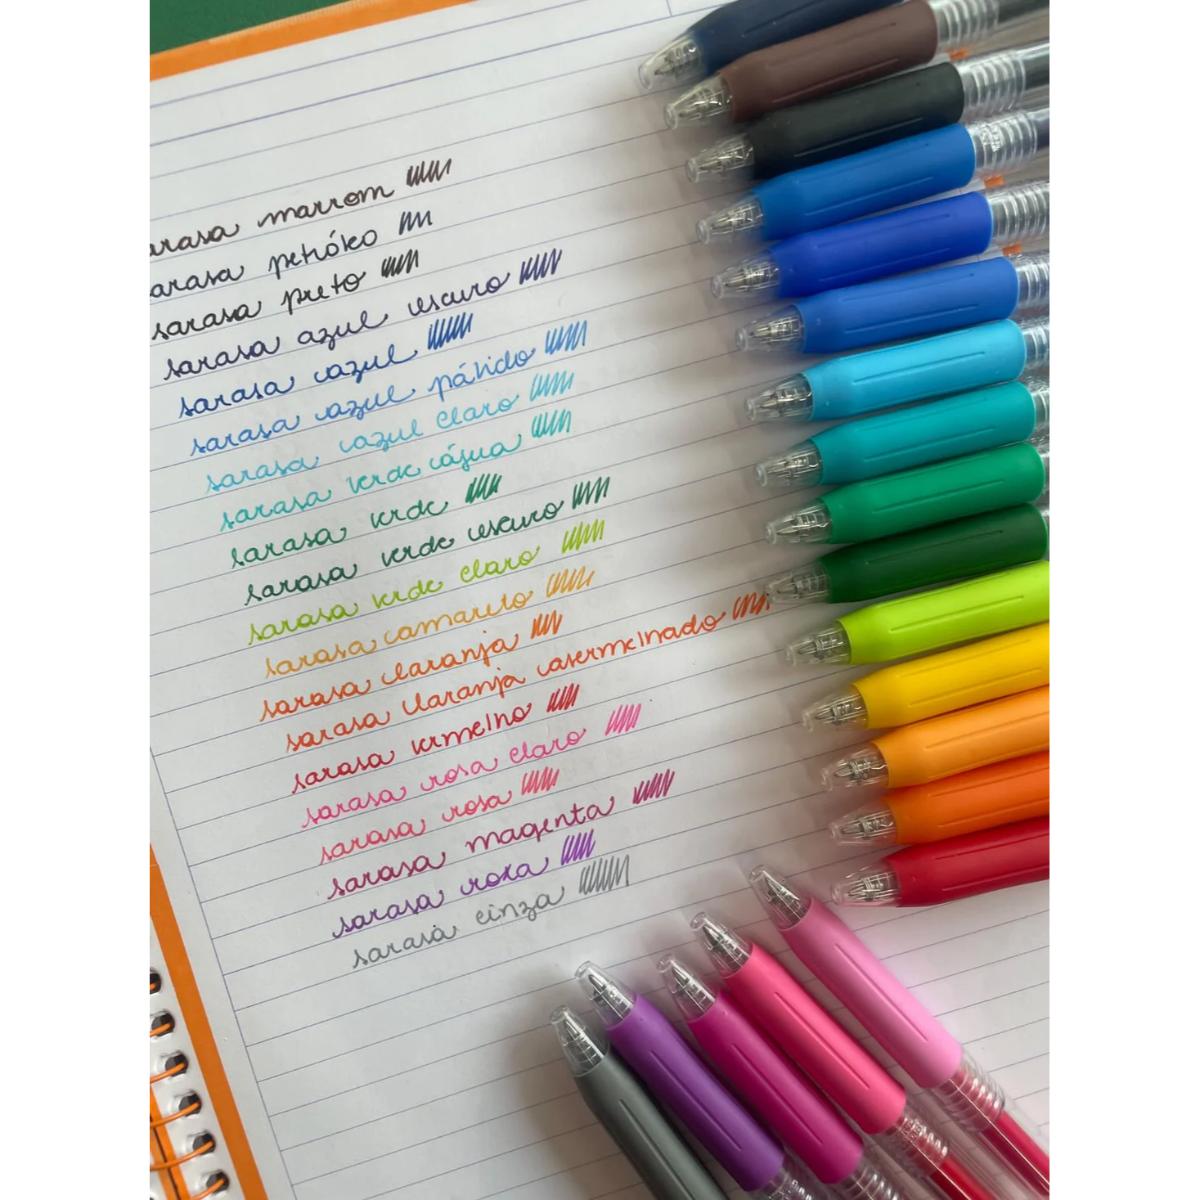 sarasa marrom
sarasa petróleo
sarasa preto
sarasa azul escuro
sarasa azul
sarasa azul pálido
sarasa azul claro
sarasa verde água
sarasa verde
sarasa verde escuro
sarasa verde claro
sarasa amarelo
sarasa laranja
sarasa laranja avermelhado
sarasa vermelho
sarasa rosa claro
sarasa rosa
sarasa magenta
sarasa roxa
sarasa cinza